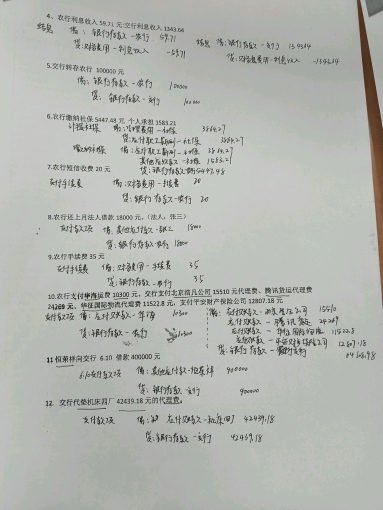 4、农行利息收入 59.71 元;交行利息收入 1343.64
结息 借：银行存款-农行 59.71 结息 借：银行存款-交行 1343.64
贷：财务费用-利息收入 -59.71 贷：财务费用-利息收入 -1343.64
5.交行转存农行 100000 元
借：银行存款-农行 100000
贷：银行存款-交行 100000
6.农行缴纳社保 5447.48 元 个人承担 1583.21
计提社保 借：管理费用-社保 3864.27
贷：应付职工薪酬-社保 3864.27
缴纳社保 借：应付职工薪酬-社保 3864.27
其他应收款-社保 1583.21
贷：银行存款 5447.48
7.农行短信收费 20 元
支付手续费 借：财务费用-手续费 20
贷：银行存款-农行 20
8.农行还上月法人借款 18000 元。(法人：张三)
支付款项 借：其他应付款-张三 18000
贷：银行存款-农行 18000
9.农行手续费 35 元
支付手续费 借：财务费用-手续费 35
贷：银行存款-农行 35
10.农行支付华海运费 10300 元，交行支付北京浩凡公司 15510 元代理费、腾讯货运代理费
24269 元、华征国际物流代理费 11522.8 元，支付平安财产保险公司 12807.18 元
支付款项 借：应付账款-华海 10300 借：应付账款-北京浩凡公司 15510
应付账款-腾讯货运 24269
贷：银行存款-农行 10300 应付账款-华征国际物流 11522.8
应付账款-平安财产保险公司 12807.18
贷：银行存款 64108.98
11 恒荣祥向交行 6.10 借款 400000 元
6.10支付款项 借：其他应付款-恒荣祥 400000
贷：银行存款-交行 400000
12. 交行代垫机床四厂 42439.18 元的代理费。
支付款项 借：应付账款-机床四厂 42439.18
贷：银行存款-交行 42439.18